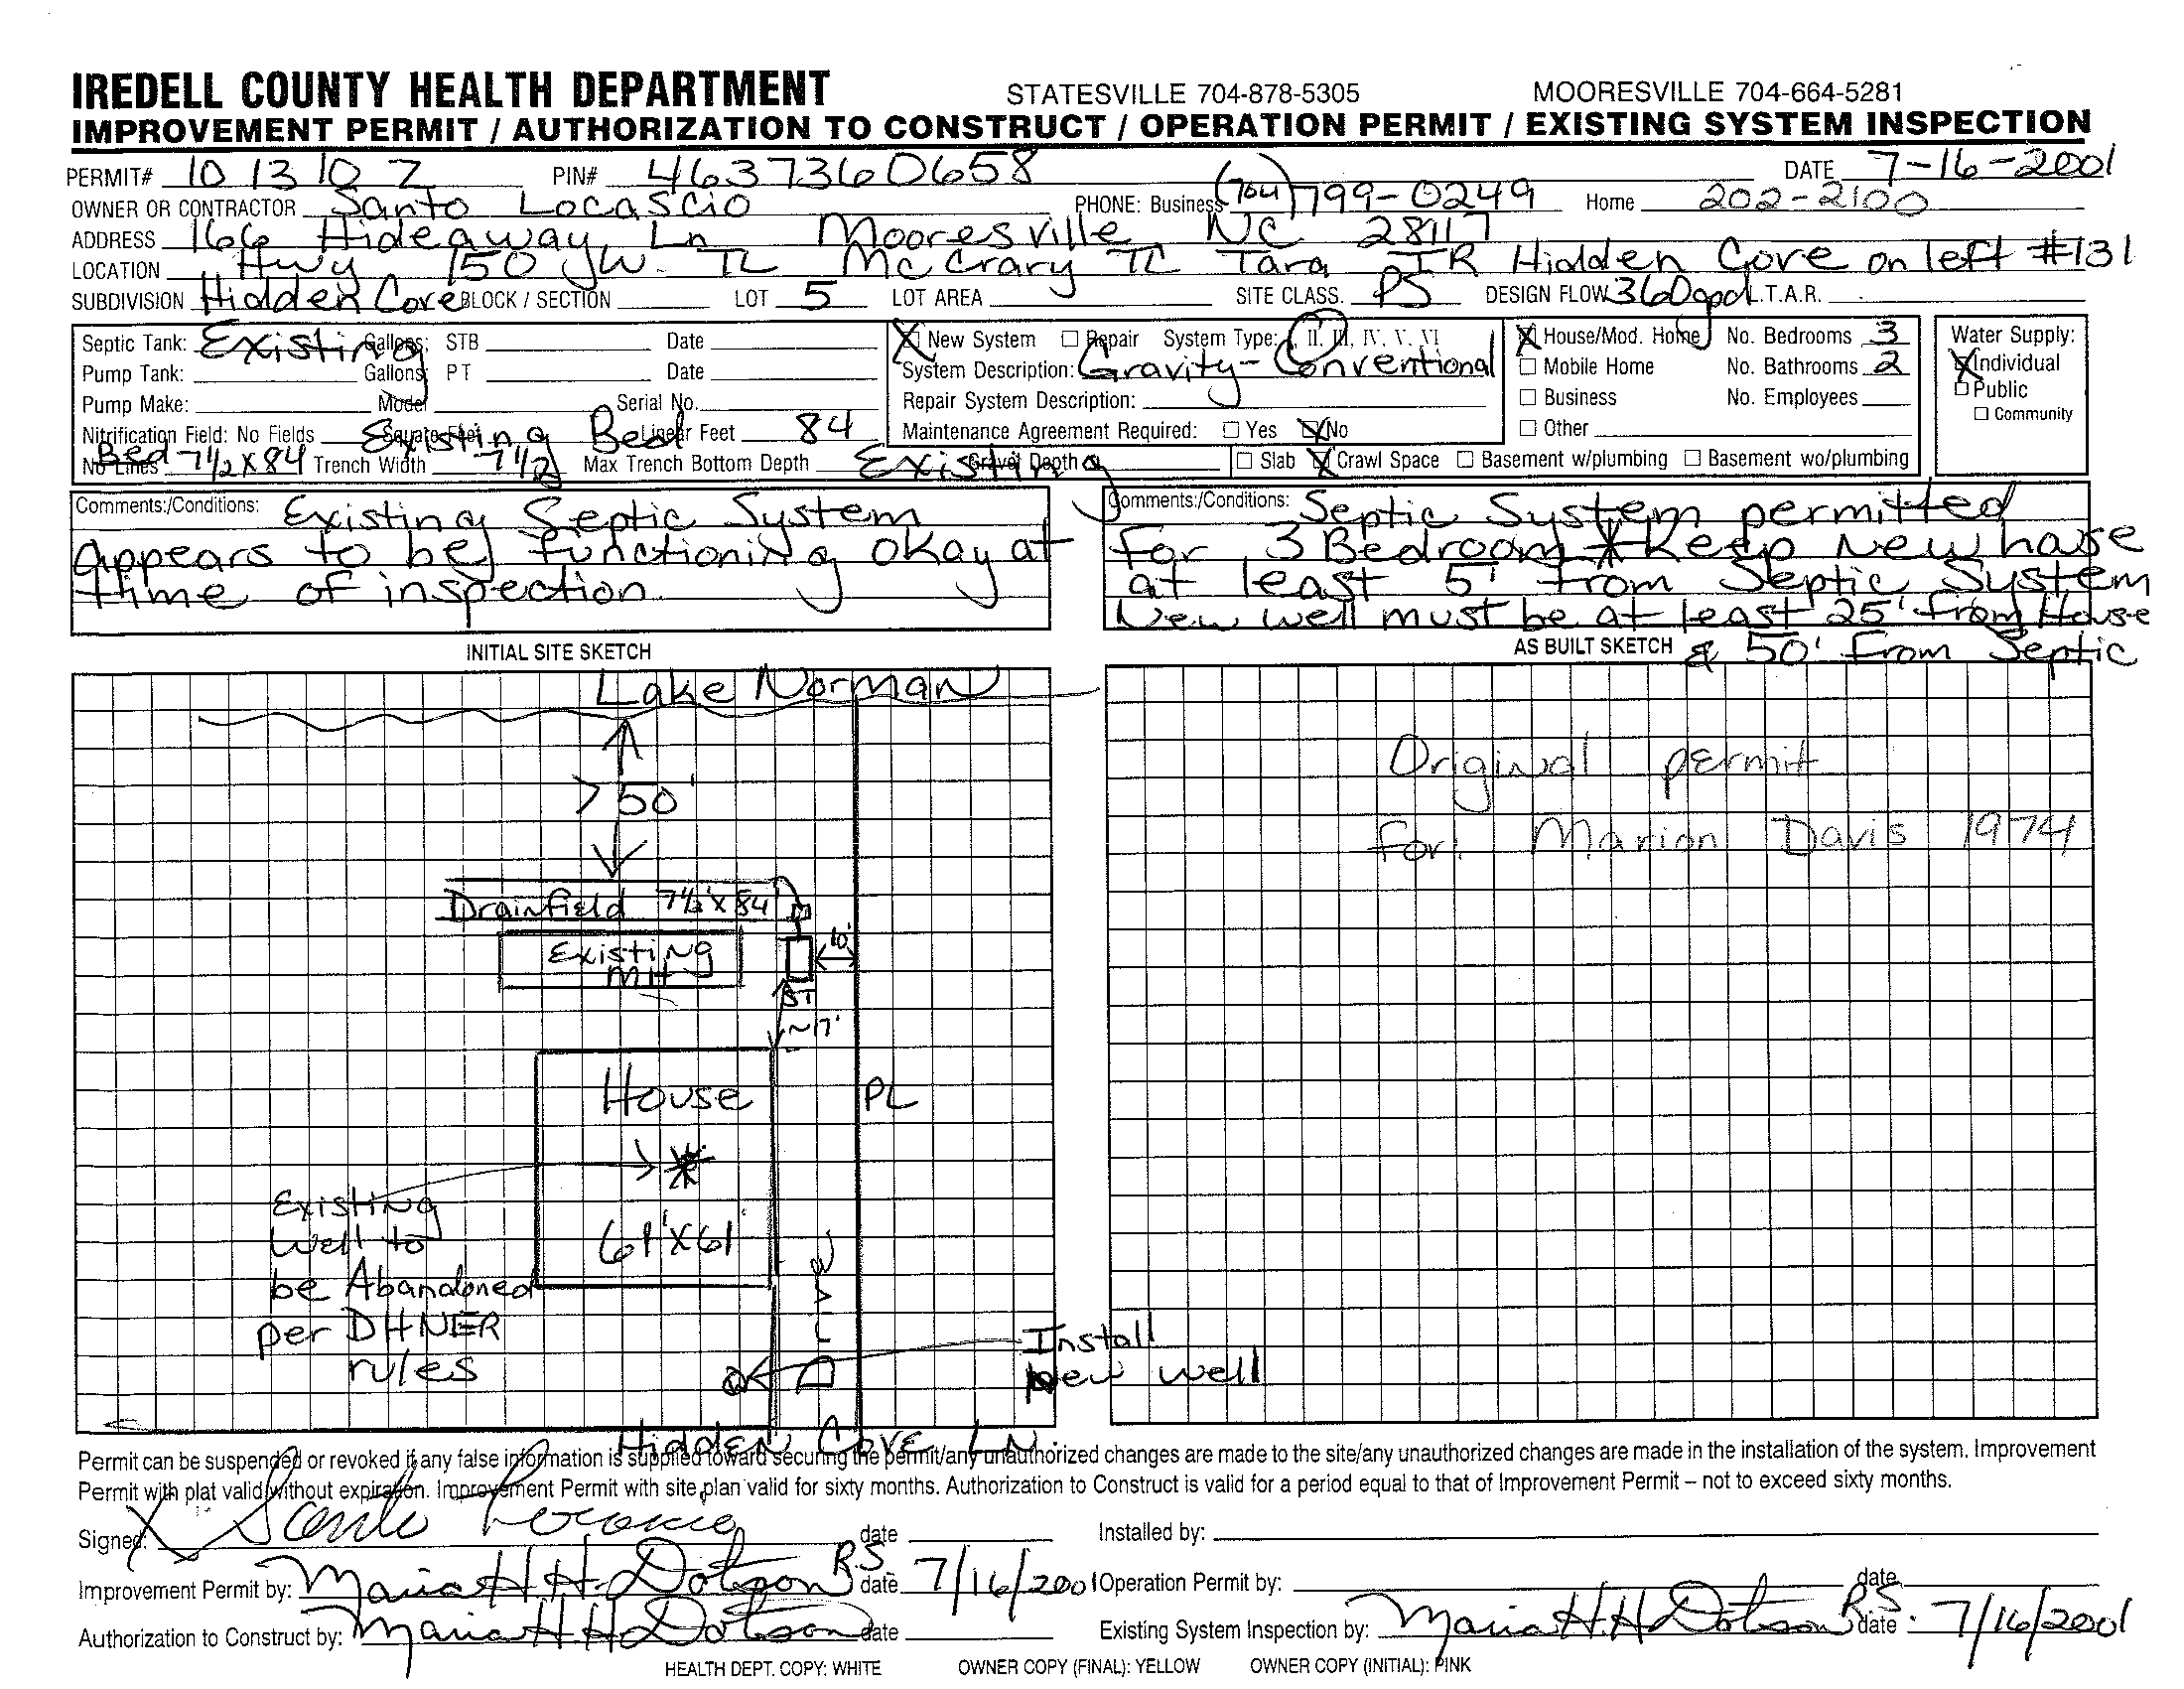 IREDELL COUNTY HEALTH DEPARTMENT STATESVILLE 704-878-5305 MOORESVILLE 704-664-5281
IMPROVEMENT PERMIT / AUTHORIZATION TO CONSTRUCT / OPERATION PERMIT / EXISTING SYSTEM INSPECTION
PERMIT# 101310Z PIN# 4637360658 DATE 7-16-2001
OWNER OR CONTRACTOR Santo Locascio PHONE: Business (704) 799-0249 Home 202-2100
ADDRESS 166 Hideaway Ln Mooresville NC 28117
LOCATION Hwy 150 W. TL McCrary TL Tara TR Hidden Cove on left #131
SUBDIVISION Hidden Cove BLOCK / SECTION LOT 5 LOT AREA SITE CLASS. PS DESIGN FLOW 360gpd L.T.A.R.
Septic Tank: Existing Gallons: STB Date
Pump Tank: Gallons: PT Date
Pump Make: Model Serial No.
Nitrification Field: No Fields Square Feet Existing Bed Linear Feet 84
No Lines Bed 7 1/2 X 84 Trench Width 7 1/2 Max Trench Bottom Depth Existing Gravel Depth
X New System Repair System Type: I, II, III, IV, V, VI
System Description: Gravity-Conventional
Repair System Description:
Maintenance Agreement Required: Yes X No
X House/Mod. Home No. Bedrooms 3
Mobile Home No. Bathrooms 2
Business No. Employees
Other
Slab X Crawl Space Basement w/plumbing Basement wo/plumbing
Water Supply:
X Individual
Public
Community
Comments:/Conditions: Existing Septic System
appears to be functioning okay at
time of inspection.
Comments:/Conditions: Septic System permitted
For 3 Bedroom * Keep New house
at least 5' from Septic System
New well must be at least 25' from House
& 50' from Septic
INITIAL SITE SKETCH
AS BUILT SKETCH
Lake Norman
> 50'
Drainfield 7 1/2' X 84'
Existing
MH
10'
ST
~17'
House
PL
61' X 61'
Existing
well to
be Abandoned
per DHNER
rules
Install
New well
Hidden Cove LN.
Original permit
for: Marion Davis 1974
Permit can be suspended or revoked if any false information is supplied toward securing the permit/any unauthorized changes are made to the site/any unauthorized changes are made in the installation of the system. Improvement
Permit with plat valid without expiration. Improvement Permit with site plan valid for sixty months. Authorization to Construct is valid for a period equal to that of Improvement Permit – not to exceed sixty months.
Signed: X Santo date Installed by:
Improvement Permit by: Maria H.H. Dotson RS date 7/16/2001 Operation Permit by: date
Authorization to Construct by: Maria H.H. Dotson date Existing System Inspection by: Maria H.H. Dotson RS date 7/16/2001
HEALTH DEPT. COPY: WHITE OWNER COPY (FINAL): YELLOW OWNER COPY (INITIAL): PINK